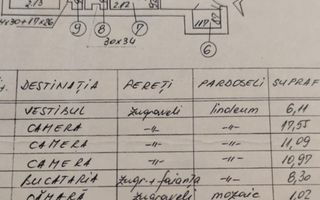 213
212
117
4x30+17x26
9 8 7
30x34
6
DESTINAȚIA PEREȚI PARDOSELI SUPRAF
VESTIBUL zugraveli linoleum 6,11
CAMERA -"- -"- 17,55
CAMERA -"- -"- 11,09
CAMERA -"- -"- 10,97
BUCATARIA zugr+faianța -"- 8,30
CĂMARĂ zugraveli mozaic 1,02